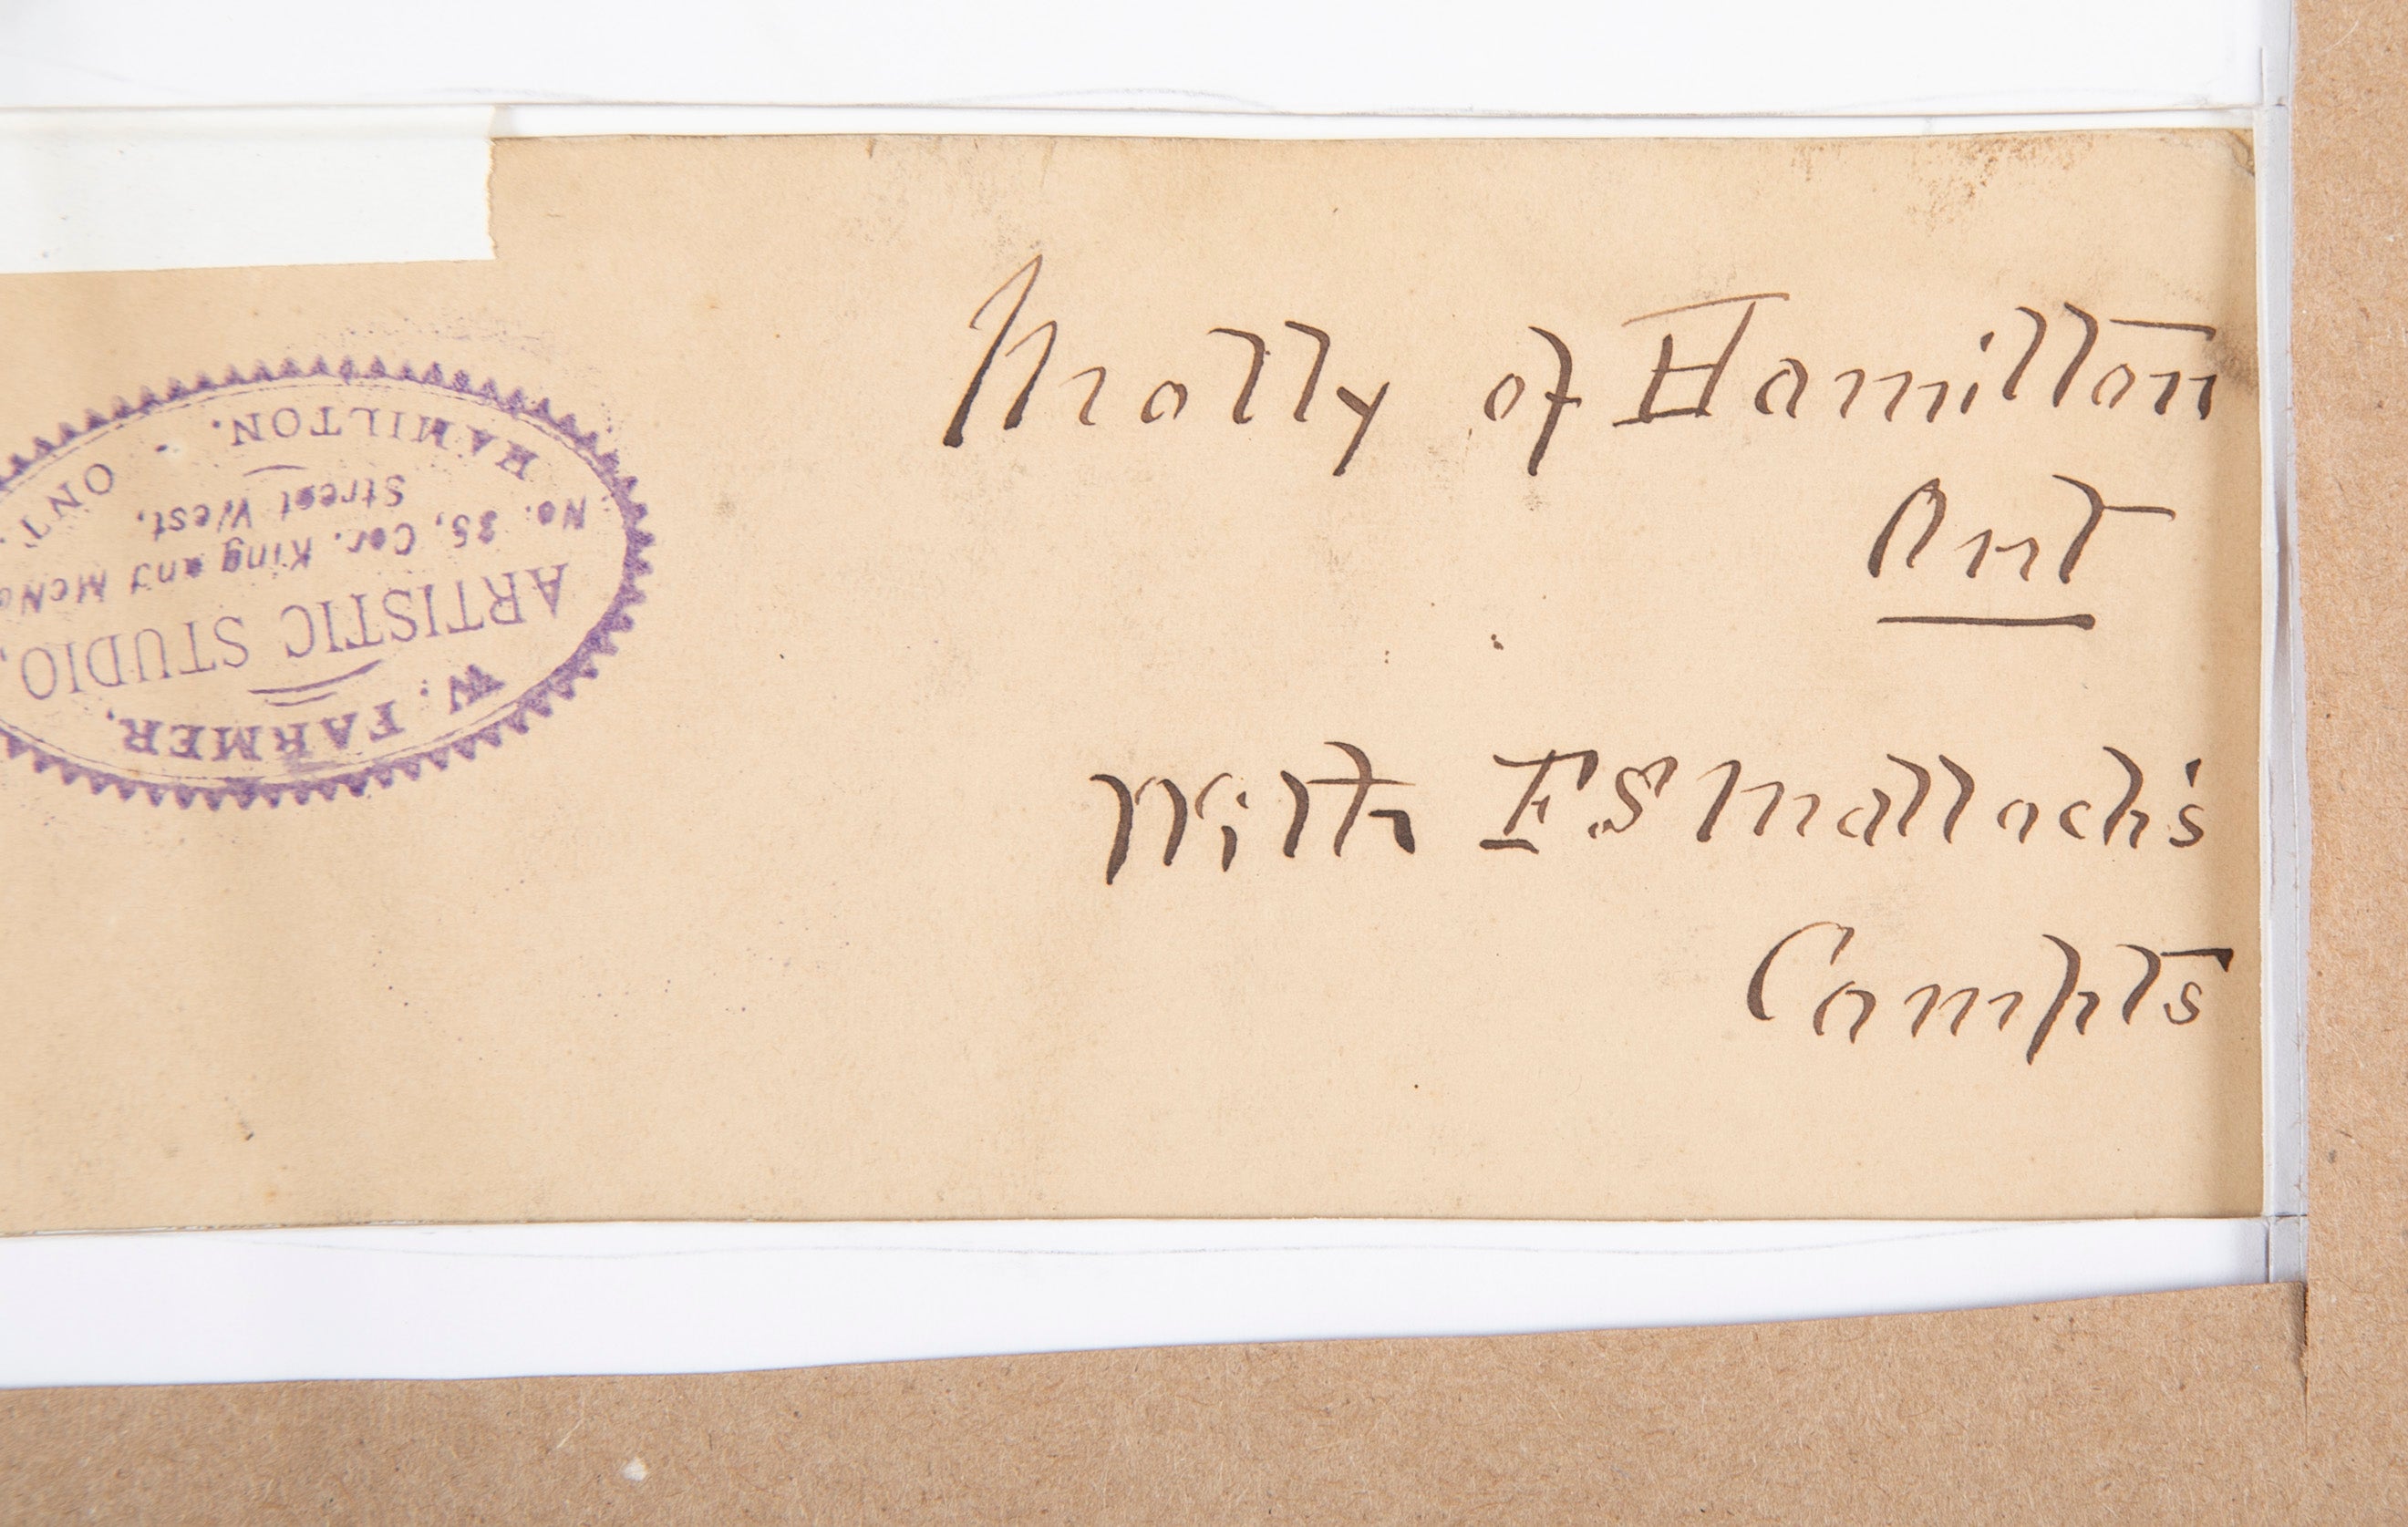 Molly of Hamilton
Ont
With F.S Malloch's
Compts
W. FARMER.
ARTISTIC STUDIO,
No. 35, Cor. King and McNa
Street West.
HAMILTON, - ONT.